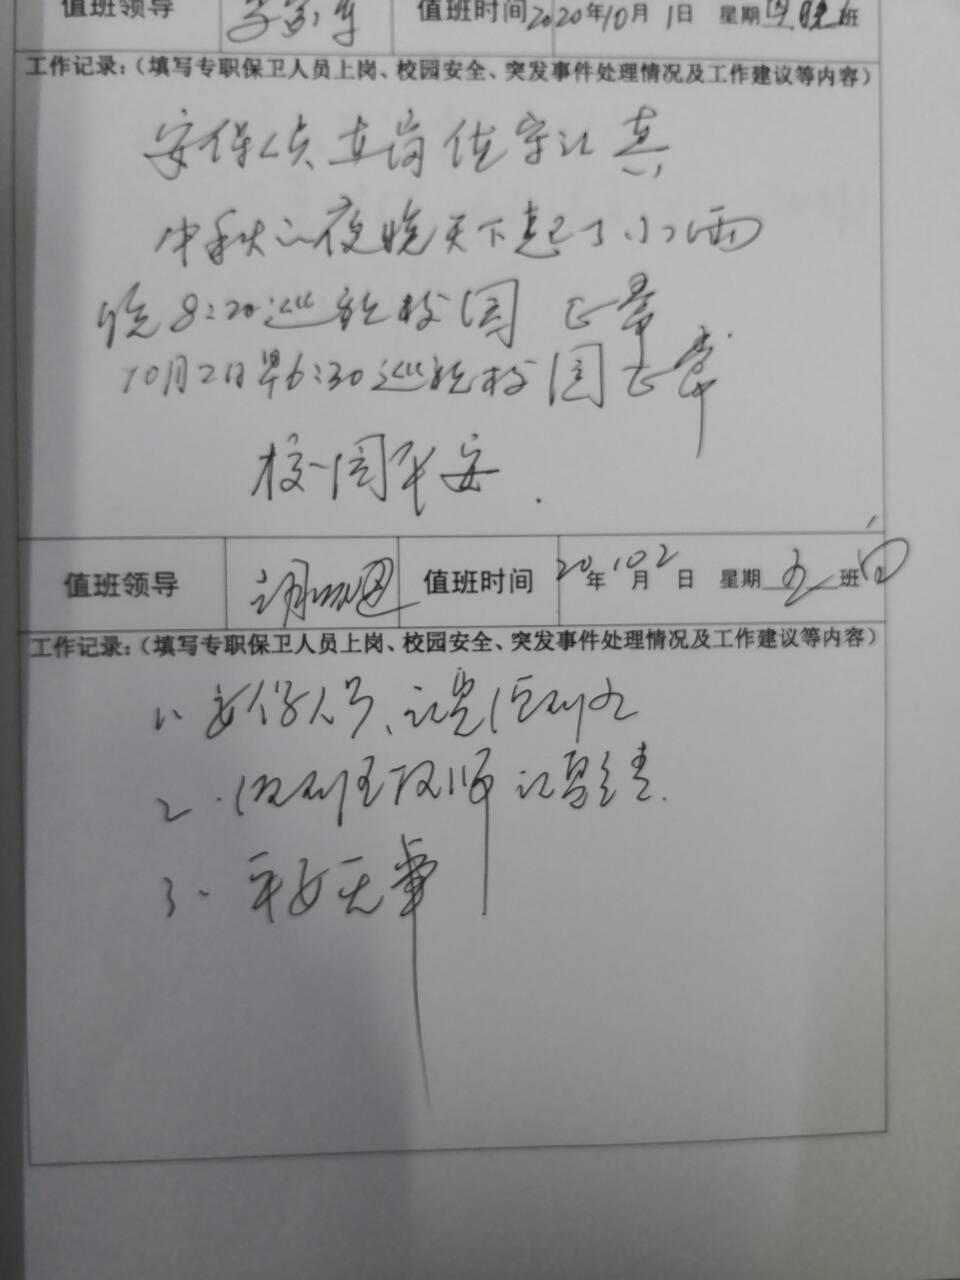 值班领导 值班时间 2020年10月1日 星期四晚班
工作记录：（填写专职保卫人员上岗、校园安全、突发事件处理情况及工作建议等内容）
安保人员在岗值守认真
中秋之夜晚天下起了小雨
晚8:20巡视校园 正常
10月2日早6:30巡视校园正常
校园平安.
值班领导 值班时间 20年10月2日 星期五班白
工作记录：（填写专职保卫人员上岗、校园安全、突发事件处理情况及工作建议等内容）
1、安保人员、认真
2、教师认真
3、平安无事